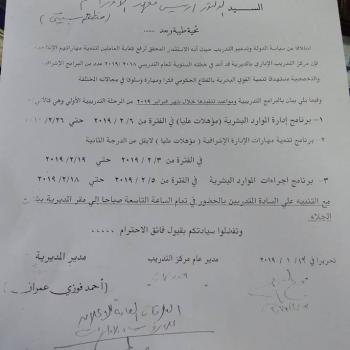 السيد الدكتور / رئيس
تحية طيبة وبعد ....
انطلاقا من سياسة الدولة وتدعيم التدريب حيث أنه الاستثمار المحقق لرفع كفاءة العاملين لتنمية مهاراتهم الإ
فإن مركز التدريب الإداري بالمديرية قد أعد في خطته السنوية للعام التدريبي ٢٠١٩/٢٠١٨ عدد من البرامج الإشرافية
والتخصصية مستهدف تنمية القوي البشرية بالقطاع الحكومي فكرا ومهارة وسلوكا في مجالاته المختلفة
وفيما يلي بيان بالبرامج التدريبية ومواعيد تنفيذها خلال شهر فبراير ٢٠١٩ من المرحلة التدريبية الأولي وهي
١- برنامج إدارة الموارد البشرية (مؤهلات عليا) في الفترة من ٢٠١٩/٢/٦ حتي
٢ - برنامج تنمية مهارات الإدارة الإشرافية ( مؤهلات عليا ) لايقل عن الدرجة الثانية
في الفترة من ٢٠١٩/٢/٣ حتي ٢٠١٩/٢/١٩
٣- برنامج اجراءات الموارد البشرية في الفترة من ٢٠١٩/٢/٥ حتي ٢٠١٩/٢/١٨
مع التنبيه علي السادة المتدربين بالحضور في تمام الساعة التاسعة صباحا إلي مقر المديرية
الجلاء
وتفضلوا سيادتكم بقبول فائق الاحترام .....
تحريرا في ٢٠١٩/١/١٢
مدير عام مركز التدريب
مدير المديرية
أحمد فوزي عمران